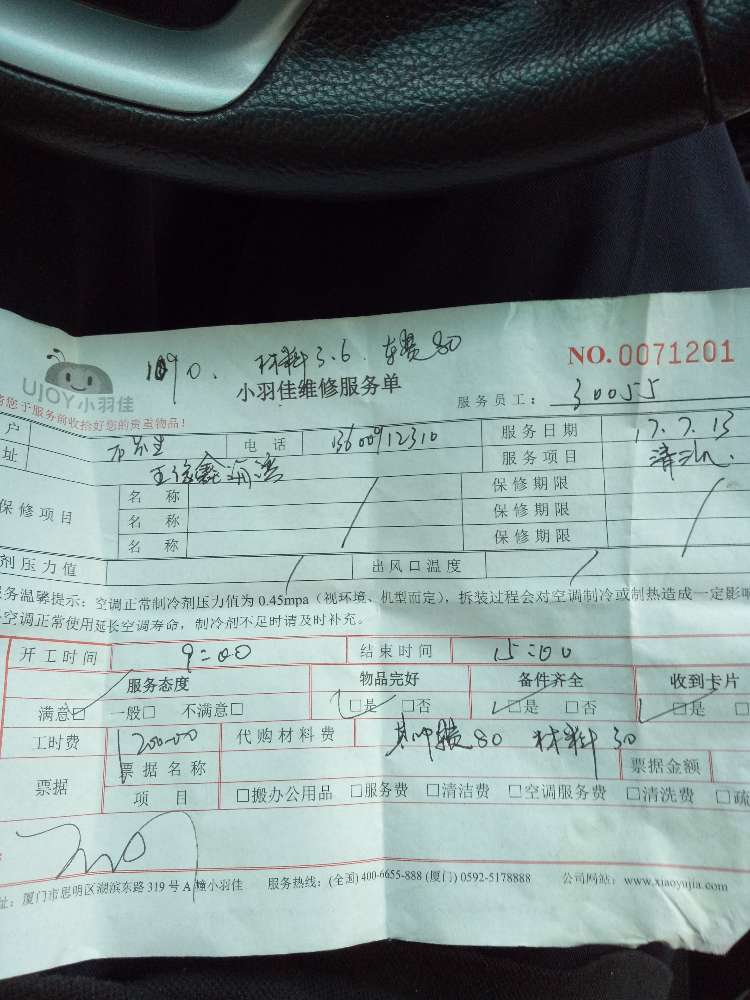 1090. 材料3.6. 车费80
UJOY小羽佳
小羽佳维修服务单
NO.0071201
服务员工: 30055
您于服务前收拾好您的贵重物品!
户 电话 13600912310 服务日期 17.7.13
址 海湾 服务项目 清洗
保修项目 名称 保修期限
名称 保修期限
名称 保修期限
剂压力值 出风口温度
务温馨提示: 空调正常制冷剂压力值为 0.45mpa (视环境、机型而定), 拆装过程会对空调制冷或制热造成一定影响
空调正常使用延长空调寿命, 制冷剂不足时请及时补充。
开工时间 9:00 结束时间 15:00
服务态度 物品完好 备件齐全 收到卡片
满意□ 一般□ 不满意□ □是 □否 □是 □否 □是
工时费 1200.00 代购材料费 其中车费80 材料30
票据 票据名称 票据金额
项目 □搬办公用品 □服务费 □清洁费 □空调服务费 □清洗费 □疏
址: 厦门市思明区湖滨东路 319 号 A 幢小羽佳 服务热线: (全国) 400-6655-888 (厦门) 0592-5178888 公司网站: www.xiaoyujia.com